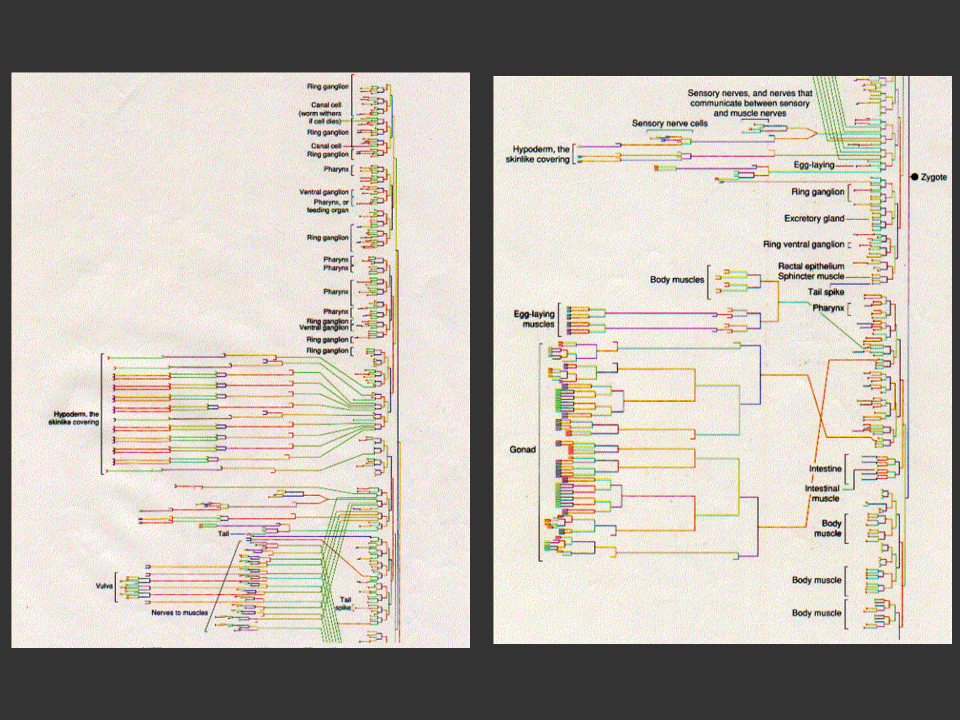 Ring ganglion
Canal cell
(worm withers
if cell dies)
Ring ganglion
Canal cell
Ring ganglion
Pharynx
Ventral ganglion
Pharynx, or
feeding organ
Ring ganglion
Pharynx
Pharynx
Pharynx
Pharynx
Ring ganglion
Ventral ganglion
Ring ganglion
Ring ganglion
Hypoderm, the
skinlike covering
Tail
Vulva
Nerves to muscles
Tail
spike
Sensory nerves, and nerves that
communicate between sensory
and muscle nerves
Sensory nerve cells
Hypoderm, the
skinlike covering
Egg-laying
Zygote
Ring ganglion
Excretory gland
Ring ventral ganglion
Rectal epithelium
Sphincter muscle
Body muscles
Tail spike
Pharynx
Egg-laying
muscles
Gonad
Intestine
Intestinal
muscle
Body
muscle
Body muscle
Body muscle